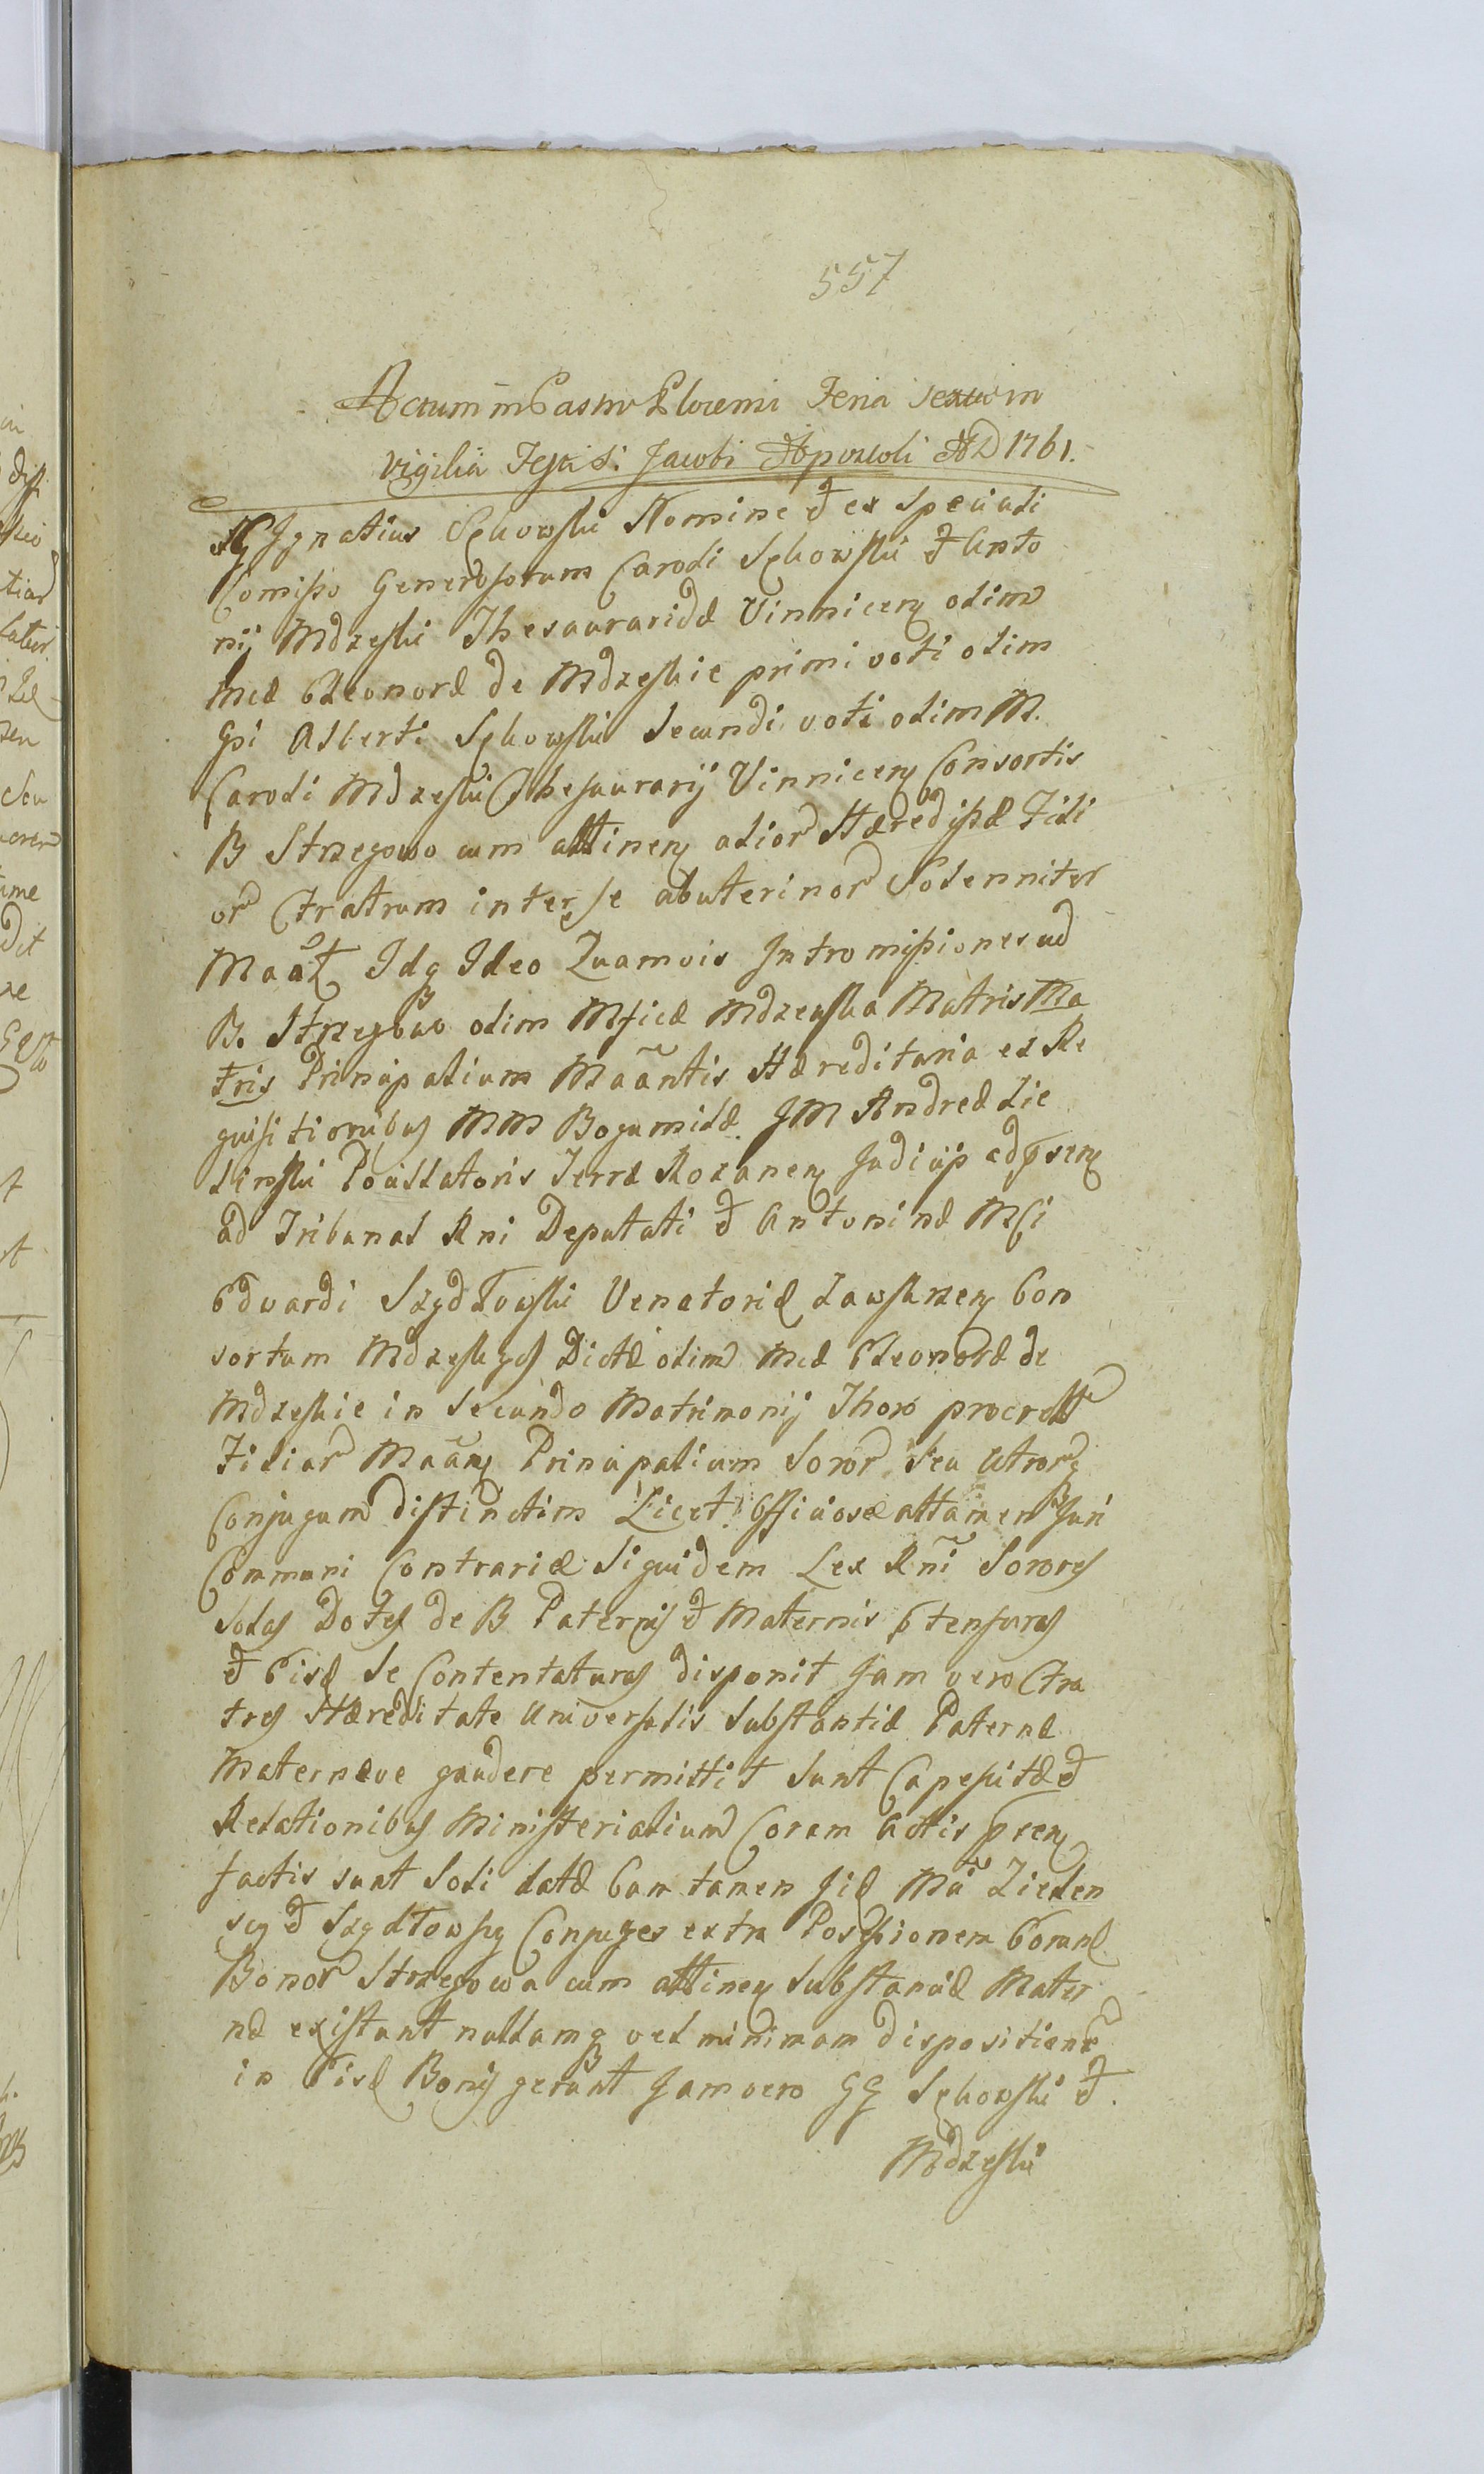 557
Actum in Castro Plocensi Feria sexta in
vigilia Festi S: Jacobi Apostoli AD 1761.
NG Ignatius Sękowski Nomine et ex speciali
Comisso Generosorum Caroli Sękowski et Anto
nij Mdzeski Thesauraridæ Vinnicen olim
Mcæ Eleonoræ de Mdzeskie primi voti olim
Gsi Alberti Sękowski secundi voti olim M.
Caroli Mdzeski Thesaurarij Vinnicen Consortis
B Strzegowo cum attinen alior Hæredissæ Fili
or Fratrum inter se abuterinor Solenniter
Idq Ideo Quamvis Intromissiones ad
B. Strzegowo olim Mficæ Mdzewska Matris Ma
tris Principalium Maãntis Hæreditaria ex Re
quisitionibus MM Bogumilæ JM Andreæ Zie
linski Terræ Rozanen Judicij
ad Tribunal Rni Deputati et Antoninæ Mfi
Edvardi Szydłowski Venatoridæ Zawskrzen Con
sortum Mdzeskych Dictæ olim Mcæ Eleonoræ de
Mdzeskie in secundo Matrimonij Thoro procreatt
Filiar Maãn Principalium Soror seu Utror
Conjugum distinctim Licet Officiose attamen Juri
Communi Contrariæ siquidem Lex Rñi Sorores
solas Dotes de B Paternis et Maternis ptensuras
et Eisd se Contentaturas disponit Jam vero Fra
tres Hæreditate Universalis substantiæ Paternæ
Maternæve gaudere permittit sunt Capesitæ et
Relationibus Ministerialium Coram Actis psen
factis sunt Solidatæ Cum tamen Zielen
scy et Szydłowscy Conjuges extra Possessionem
Bonor Strzegowa cum attinen substanciæ Mater
næ existant nullamq vel minimam dispositionem
in Eisd Bonis gerant Jam vero GG Sękowski et
Mdzeski